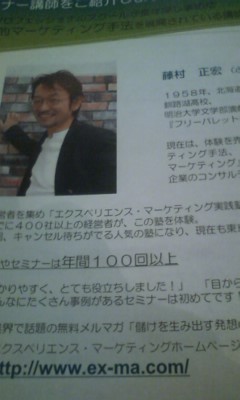 ナー講師をご紹介
的マーケティング手法を
藤村 正宏
1958年、北海道
釧路湖高校、
明治大学文学部演劇
『フリーパレット
現在は、体験を
ティング手法、
マーケティング
企業のコンサル
営者を集め「エクスペリエンス・マーケティング実践塾
でに400社以上の経営者が、この塾を体験。
キャンセル待ちがでる人気の塾になり、現在も東
やセミナーは年間100回以上
かりやすく、とても役立ちました！」 「目から
んなにたくさん事例があるセミナーは初めてです！
業界で話題の無料メルマガ「儲けを生み出す発想
エクスペリエンス・マーケティングホームページ
http://www.ex-ma.com/